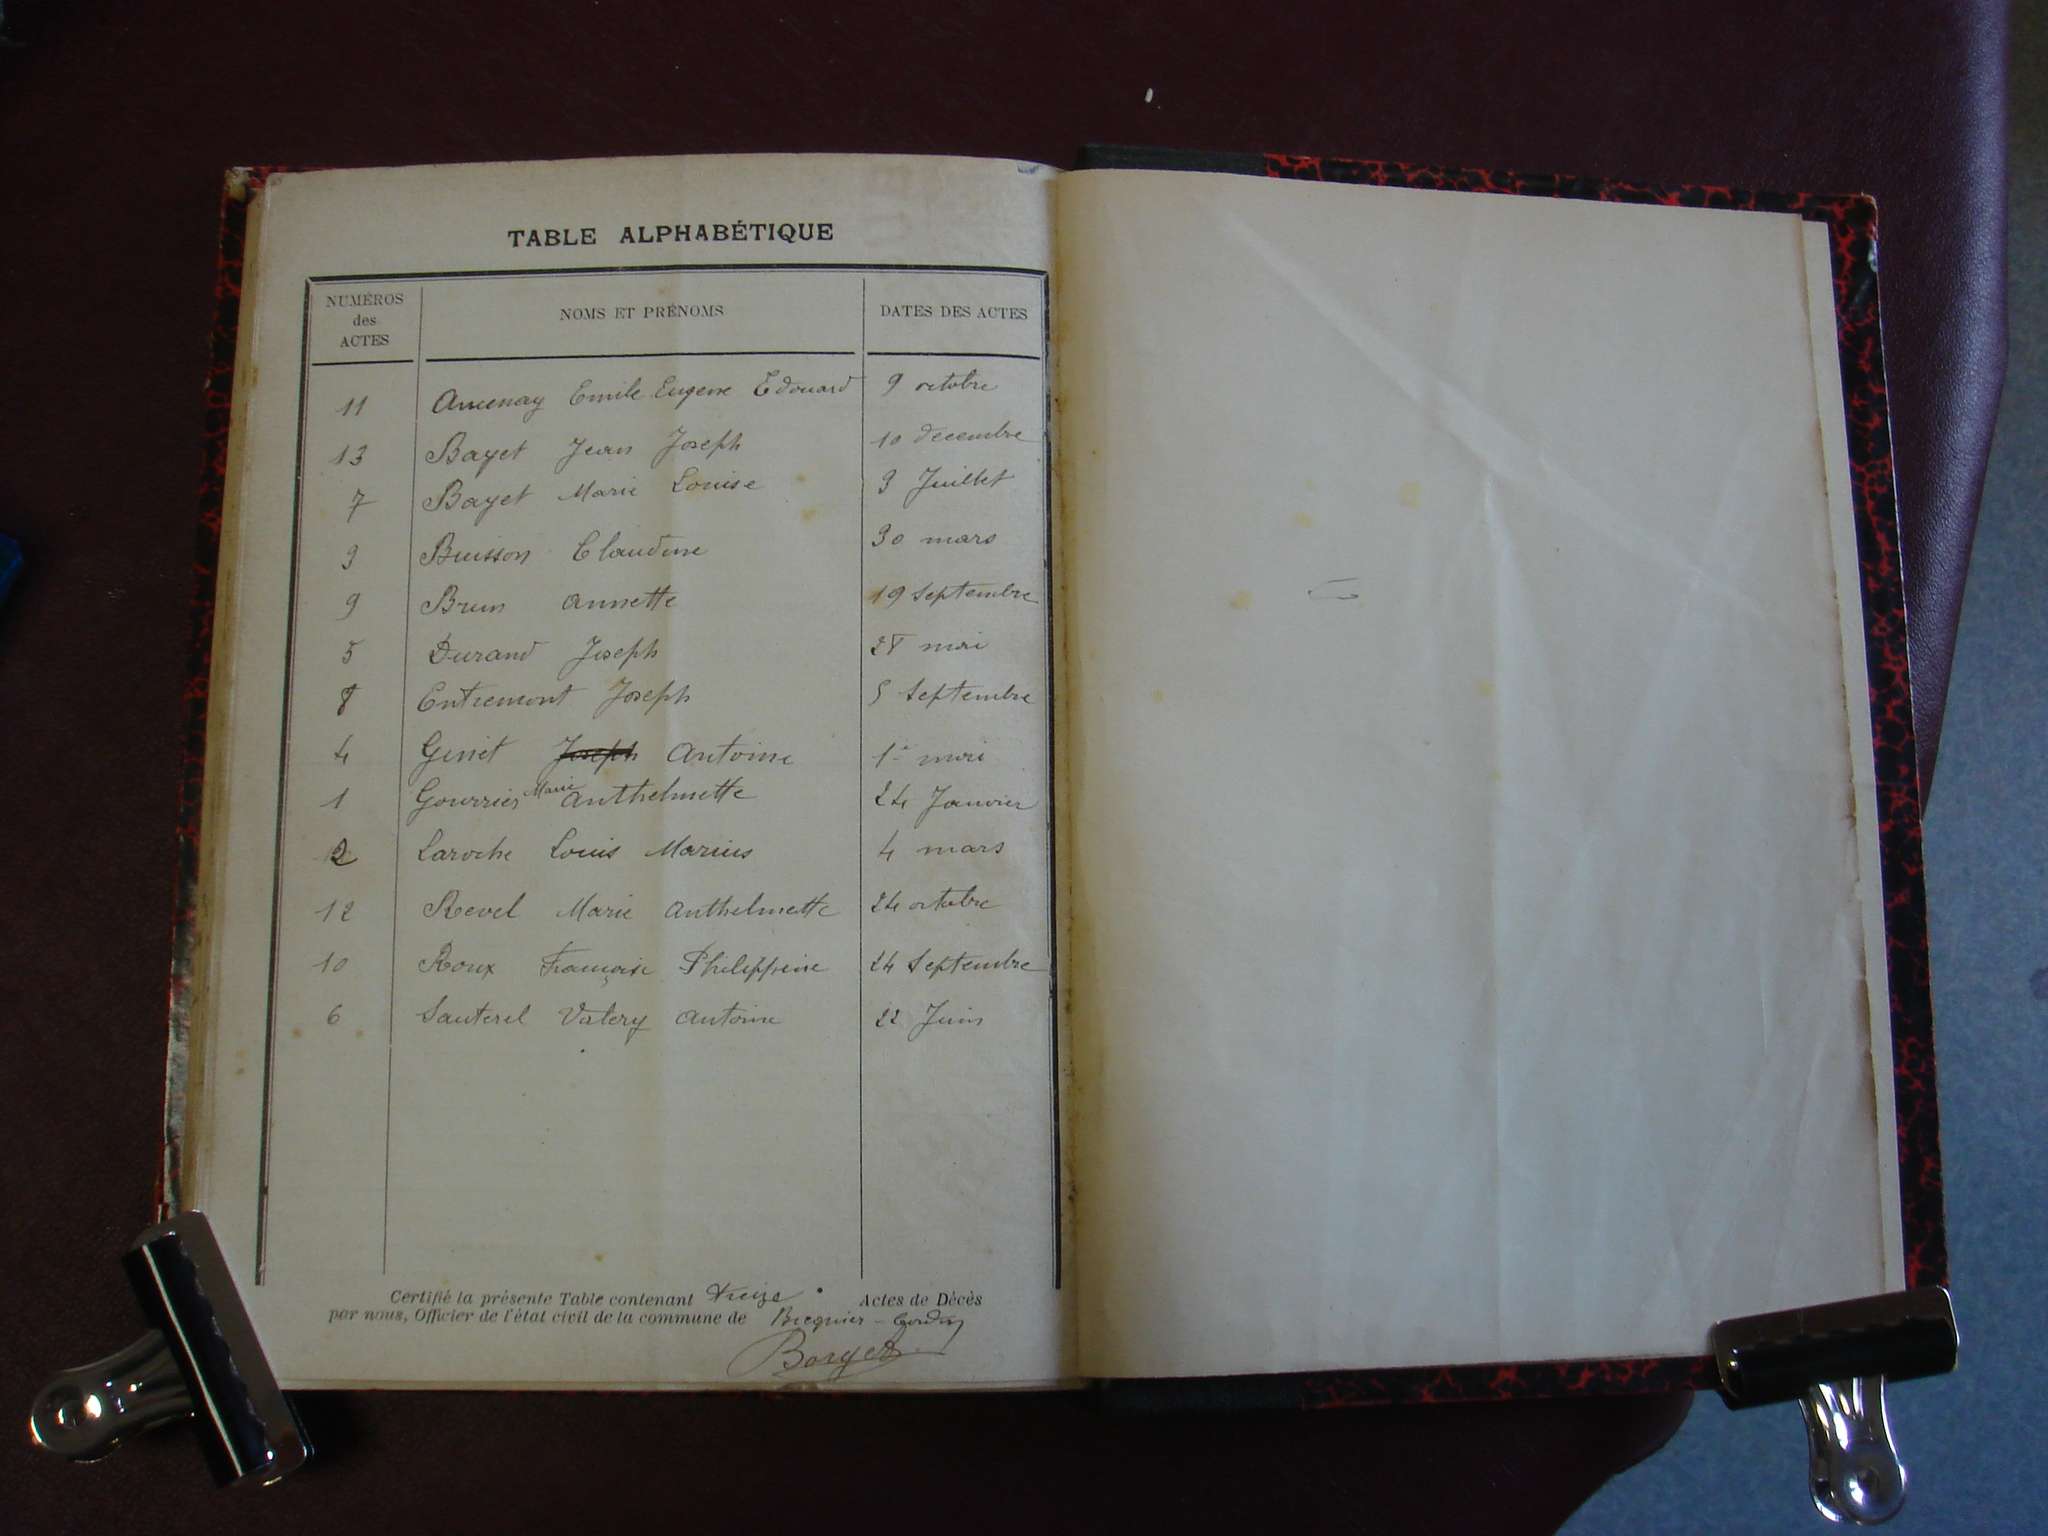 TABLE ALPHABÉTIQUE
NUMÉROS des ACTES NOMS ET PRÉNOMS DATES DES ACTES
11 Emile Eugene Edouard 9 octobre
13 Bayet Jean Joseph 10 decembre
7 Bayet Marie Louise 9 Juillet
9 Buisson Claudine 30 mars
9 Brun Annette 19 Septembre
5 Durand Joseph 28 mai
8 Entremont Joseph 5 Septembre
4 Ginet Joseph Antoine 1er mai
1 Gourrier Marie Anthelmette 24 Janvier
2 Laroche Louis Marius 4 mars
12 Revel Marie Anthelmette 24 octobre
10 Roux Françoise Philippine 24 Septembre
6 Sauterel Valery Antoine 22 Juin
Certifié la présente Table contenant treize Actes de Décès
par nous, Officier de l'état civil de la commune de Brégnier-Cordon